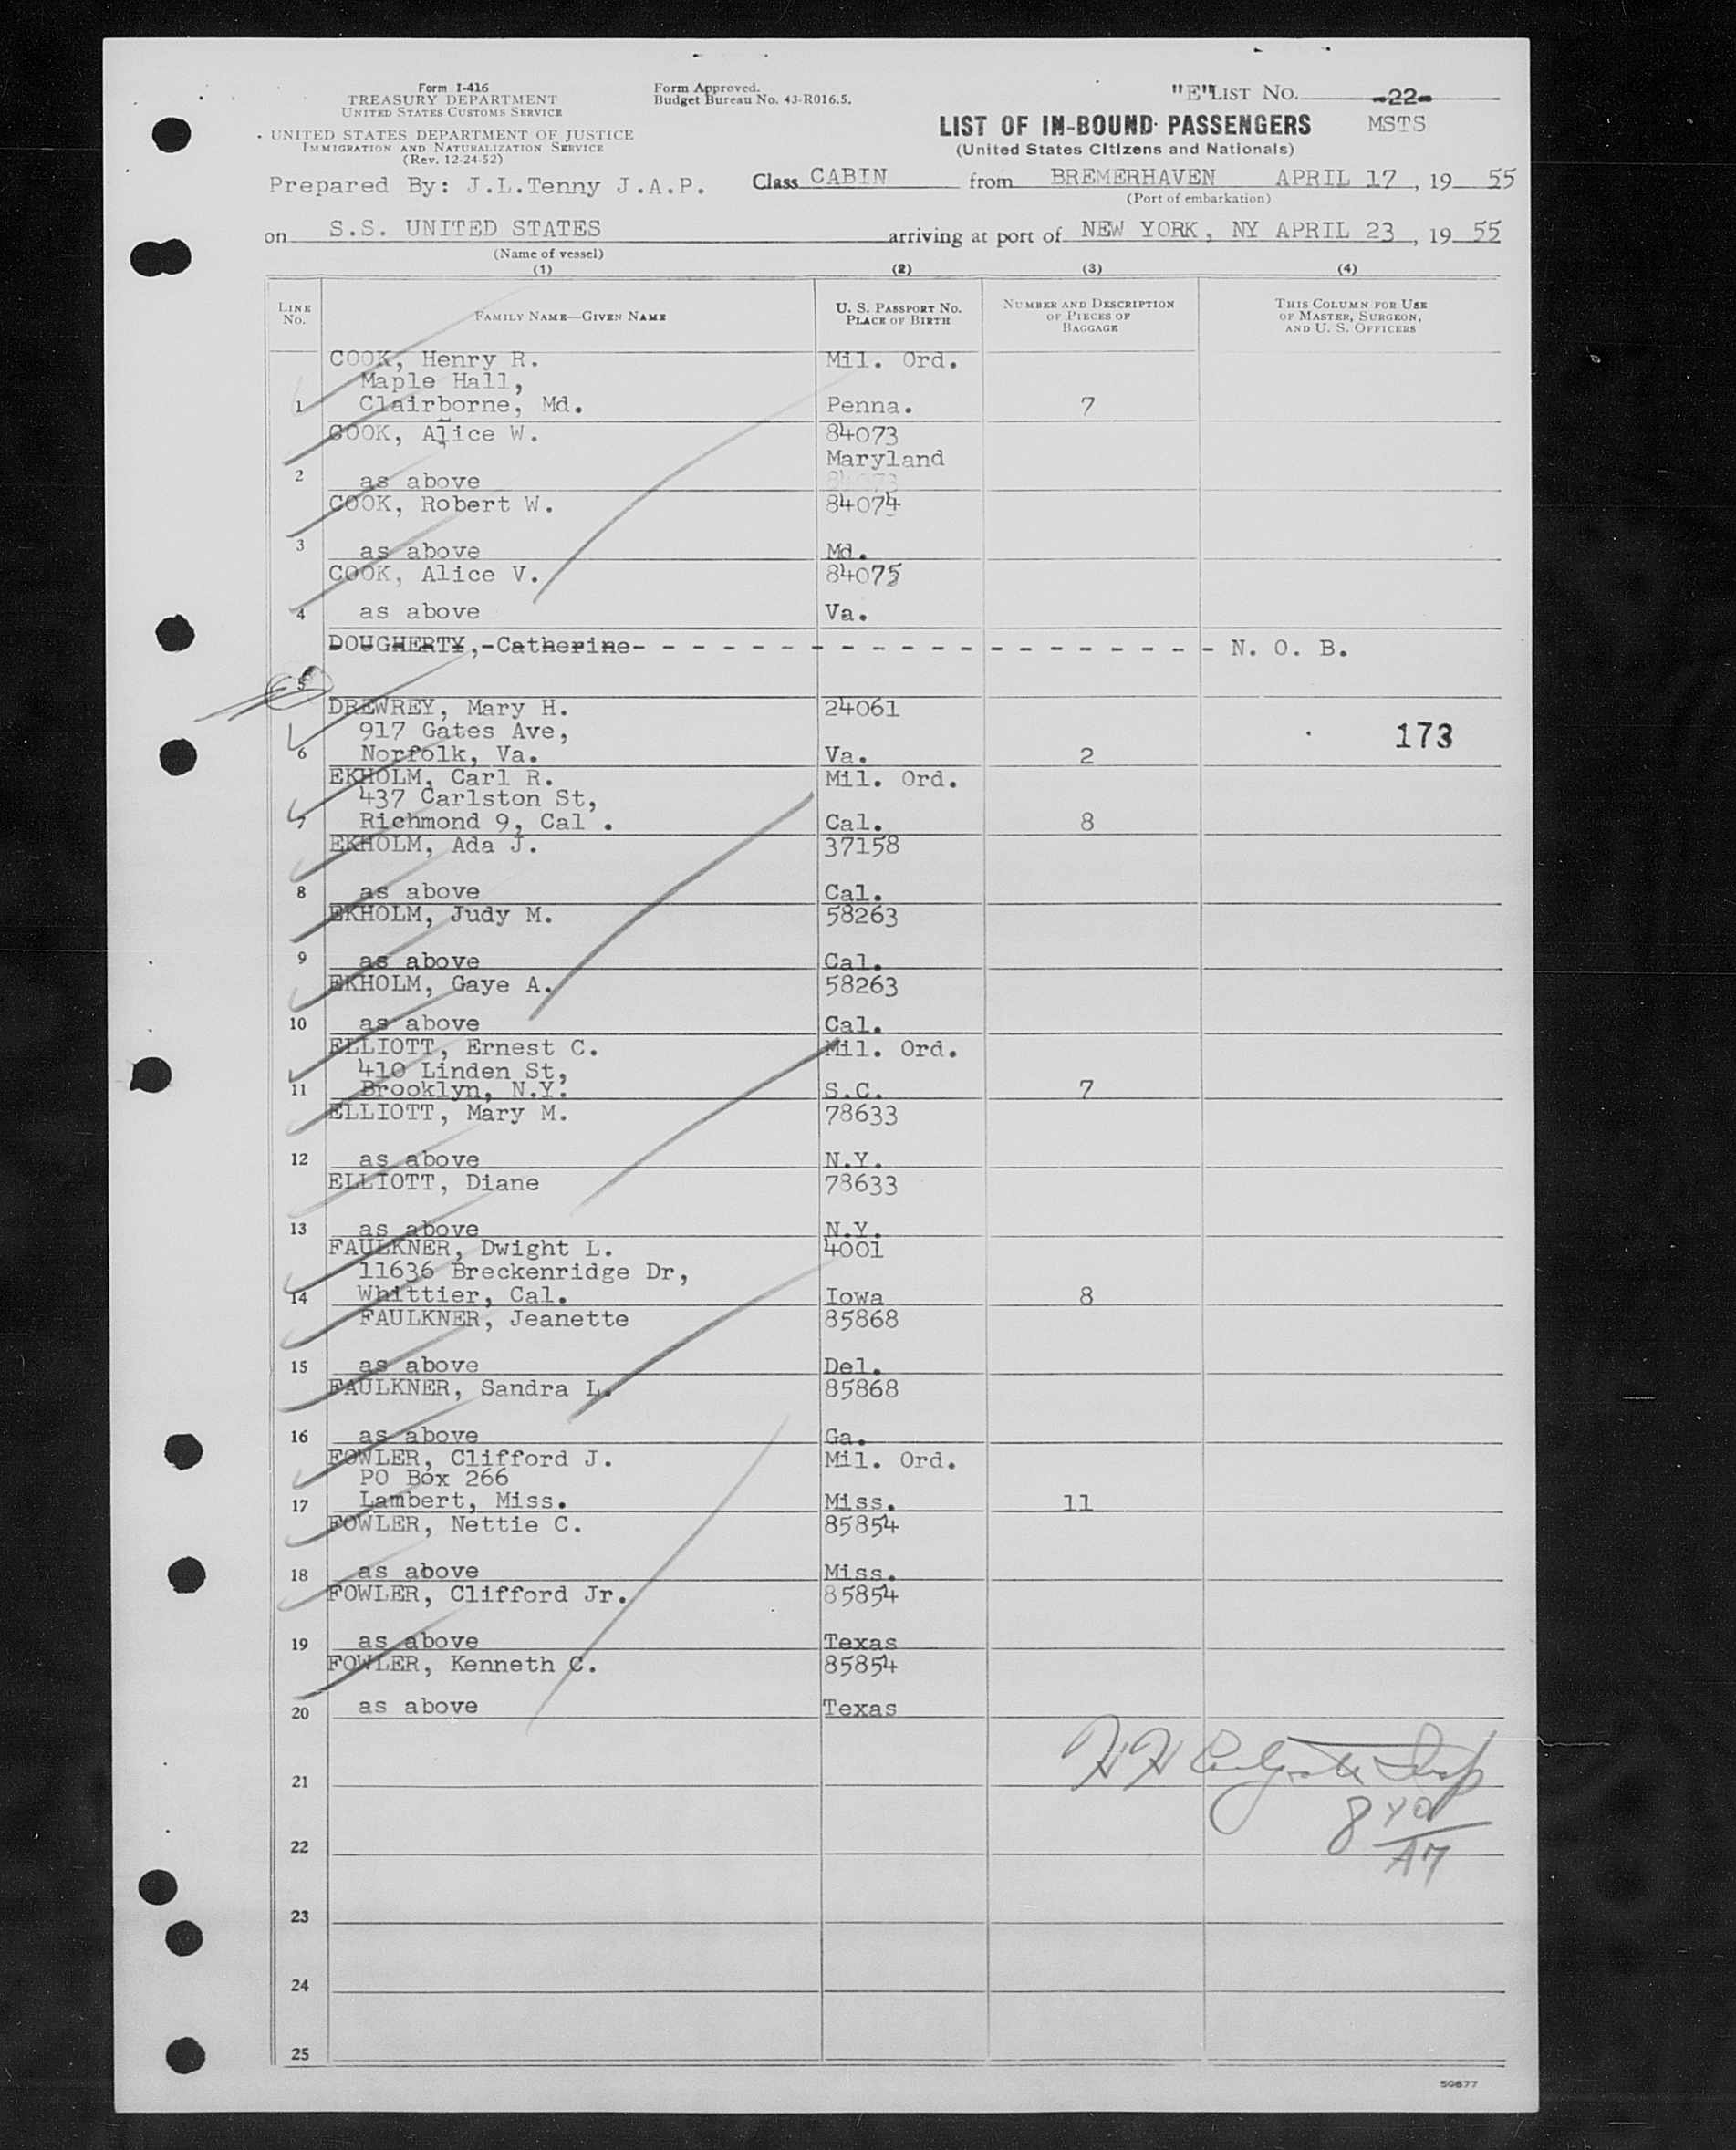 Form I-416
TREASURY DEPARTMENT
UNITED STATES CUSTOMS SERVICE
UNITED STATES DEPARTMENT OF JUSTICE
IMMIGRATION AND NATURALIZATION SERVICE
(Rev. 12-24-52)
Form Approved.
Budget Bureau No. 43-R016.5.
"E" LIST No. -22-
LIST OF IN-BOUND PASSENGERS MSTS
(United States Citizens and Nationals)
Prepared By: J.L.Tenny J.A.P. Class CABIN from BREMERHAVEN APRIL 17, 19 55
(Port of embarkation)
on S.S. UNITED STATES arriving at port of NEW YORK, NY APRIL 23, 19 55
(Name of vessel)
(1) (2) (3) (4)
LINE No. FAMILY NAME—GIVEN NAME U. S. PASSPORT No. PLACE OF BIRTH NUMBER AND DESCRIPTION OF PIECES OF BAGGAGE THIS COLUMN FOR USE OF MASTER, SURGEON, AND U. S. OFFICERS
COOK, Henry R. Mil. Ord.
Maple Hall,
1 Clairborne, Md. Penna. 7
COOK, Alice W. 84073
Maryland
2 as above
COOK, Robert W. 84074
3 as above Md.
COOK, Alice V. 84075
4 as above Va.
DOUGHERTY,-Catherine- - - - - - - - - - - - - - - - - - - - - N. O. B.
5
DREWREY, Mary H. 24061
917 Gates Ave, 173
6 Norfolk, Va. Va. 2
EKHOLM, Carl R. Mil. Ord.
437 Carlston St,
7 Richmond 9, Cal . Cal. 8
EKHOLM, Ada J. 37158
8 as above Cal.
EKHOLM, Judy M. 58263
9 as above Cal.
EKHOLM, Gaye A. 58263
10 as above Cal.
ELLIOTT, Ernest C. Mil. Ord.
410 Linden St,
11 Brooklyn, N.Y. S.C. 7
ELLIOTT, Mary M. 78633
12 as above N.Y.
ELLIOTT, Diane 78633
13 as above N.Y.
FAULKNER, Dwight L. 4001
11636 Breckenridge Dr,
14 Whittier, Cal. Iowa 8
FAULKNER, Jeanette 85868
15 as above Del.
FAULKNER, Sandra L. 85868
16 as above Ga.
FOWLER, Clifford J. Mil. Ord.
PO Box 266
17 Lambert, Miss. Miss. 11
FOWLER, Nettie C. 85854
18 as above Miss.
FOWLER, Clifford Jr. 85854
19 as above Texas
FOWLER, Kenneth C. 85854
20 as above Texas
21
22
23
24
25
50877